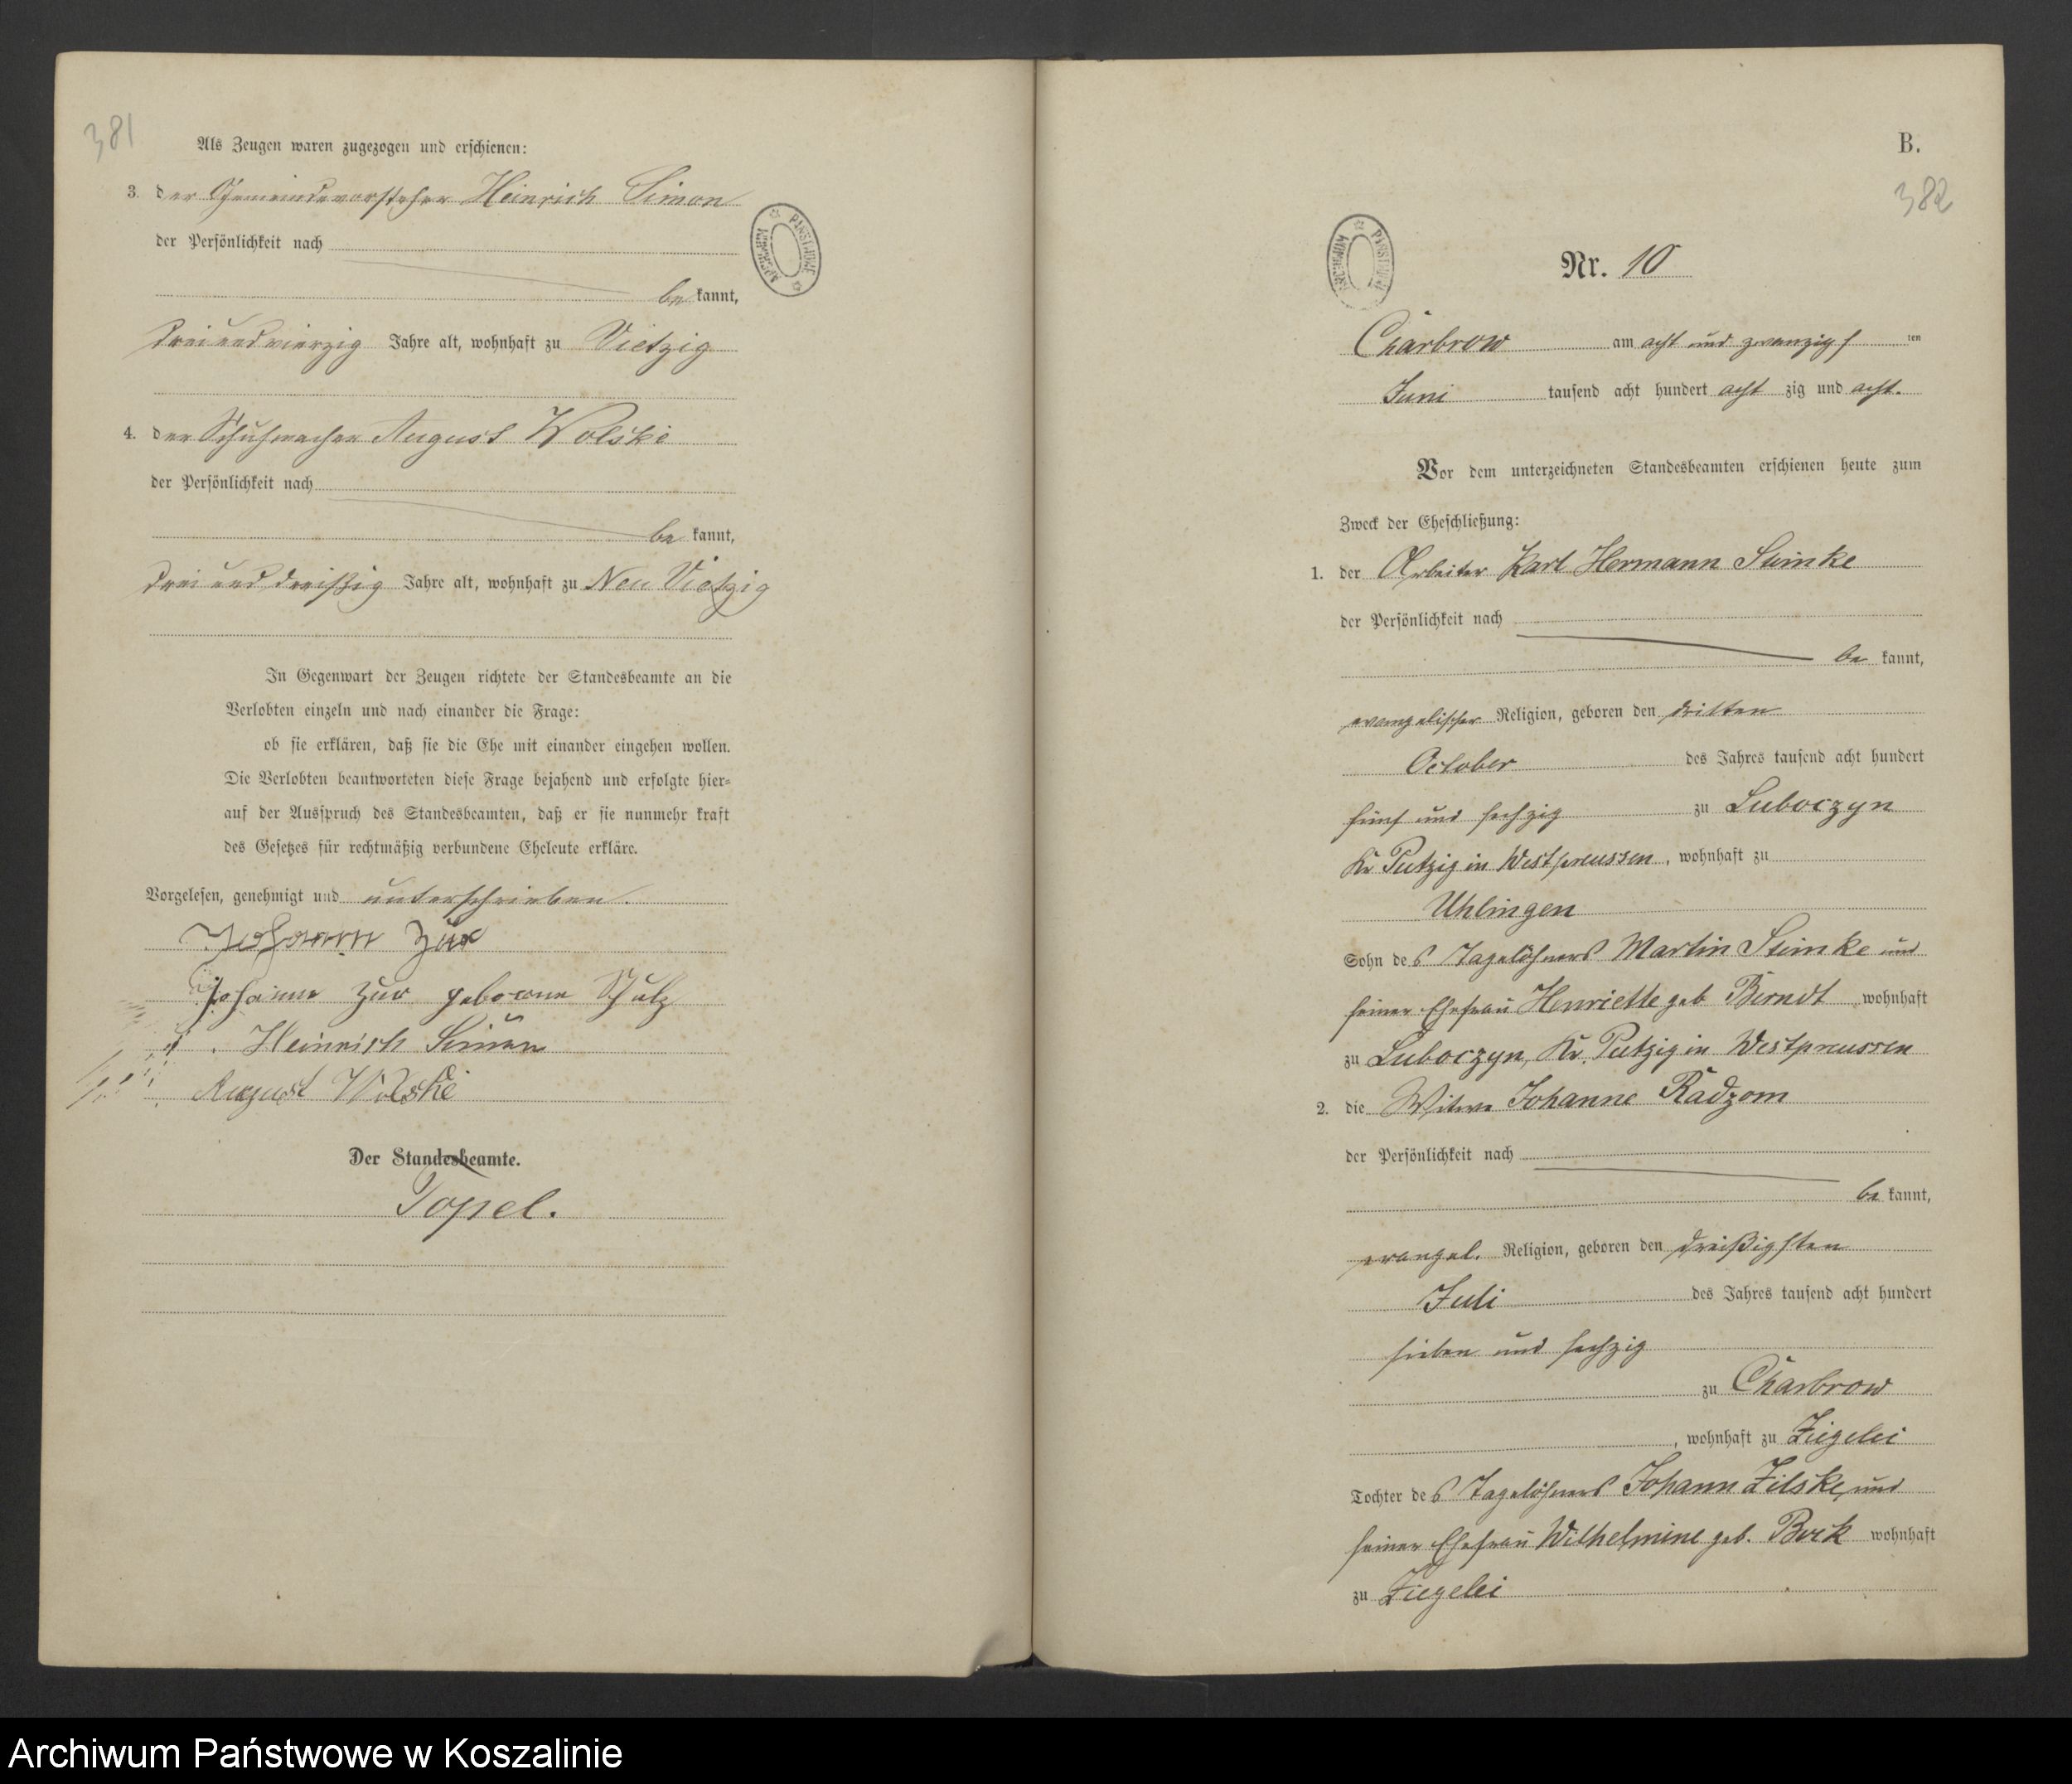 381
Als Zeugen waren zugezogen und erschienen:
3. der Gemeindevorsteher Heinrich Simon
der Persönlichkeit nach
be kannt,
drei und vierzig Jahre alt, wohnhaft zu Vietzig
4. der Schuhmacher August Wolske
der Persönlichkeit nach
be kannt,
drei und dreißig Jahre alt, wohnhaft zu Neu Vietzig
In Gegenwart der Zeugen richtete der Standesbeamte an die
Verlobten einzeln und nach einander die Frage:
ob sie erklären, daß sie die Ehe mit einander eingehen wollen.
Die Verlobten beantworteten diese Frage bejahend und erfolgte hier-
auf der Ausspruch des Standesbeamten, daß er sie nunmehr kraft
des Gesetzes für rechtmäßig verbundene Eheleute erkläre.
Vorgelesen, genehmigt und unterschrieben.
Johann Zur
Johanne Zur geborene Schulz
Heinrich Simon
August Wolske
Der Standesbeamte.
Topel.
B.
382
Nr. 10
Charbrow am acht und zwanzigsten
Juni tausend acht hundert acht zig und acht.
Vor dem unterzeichneten Standesbeamten erschienen heute zum
Zweck der Eheschließung:
1. der Arbeiter Karl Hermann Steinke
der Persönlichkeit nach
be kannt,
evangelischer Religion, geboren den dritten
October des Jahres tausend acht hundert
fünf und sechzig zu Luboczyn
Kr Putzig in Westpreussen, wohnhaft zu
Uhlingen
Sohn des Tagelöhners Martin Steinke und
seiner Ehefrau Henriette geb Berndt wohnhaft
zu Luboczyn, Kr. Putzig in Westpreussen
2. die Witwe Johanne Radzom
der Persönlichkeit nach
be kannt,
evangel. Religion, geboren den dreißigsten
Juli des Jahres tausend acht hundert
sieben und sechzig
zu Charbrow
, wohnhaft zu Ziegelei
Tochter des Tagelöhners Johann Zilske und
seiner Ehefrau Wilhelmine geb. Bock wohnhaft
zu Ziegelei
Archiwum Państwowe w Koszalinie